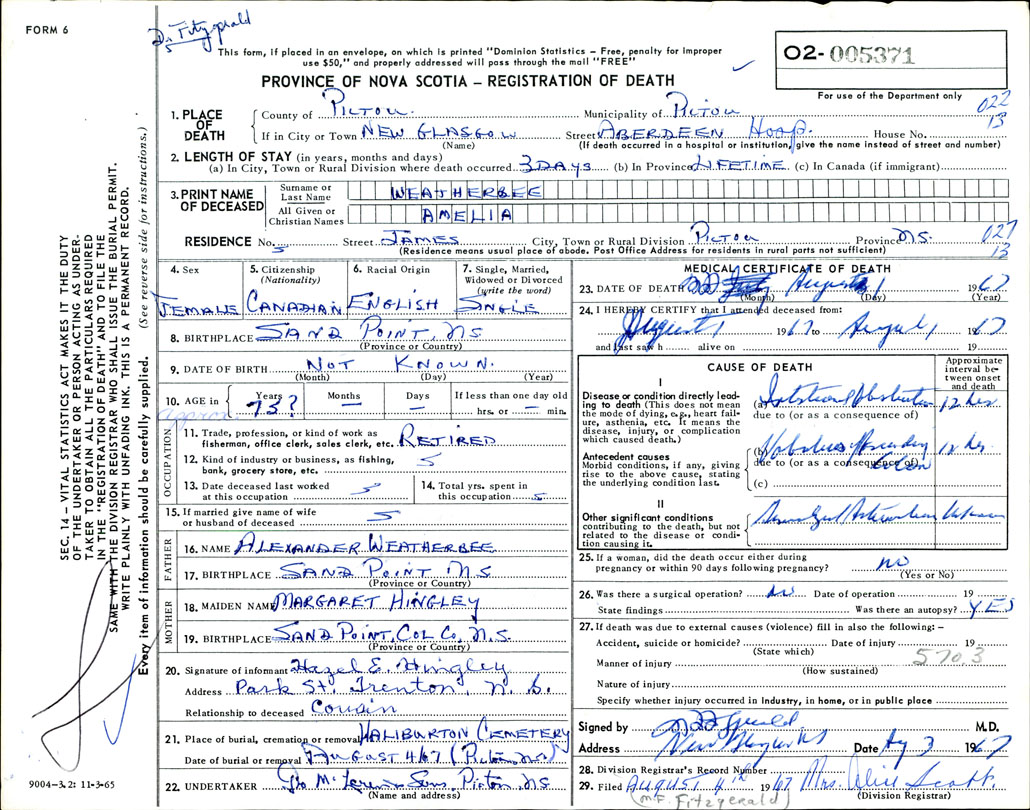 FORM 6
Dr Fitzgerald
This form, if placed in an envelope, on which is printed "Dominion Statistics – Free, penalty for improper
use $50," and properly addressed will pass through the mail "FREE"
O2- 005371
PROVINCE OF NOVA SCOTIA – REGISTRATION OF DEATH
For use of the Department only
022
13
1. PLACE OF DEATH
County of PICTOU Municipality of PICTOU
If in City or Town NEW GLASGOW Street ABERDEEN Hosp. House No.
(Name) (If death occurred in a hospital or institution, give the name instead of street and number)
2. LENGTH OF STAY (in years, months and days)
(a) In City, Town or Rural Division where death occurred 3 DAYS (b) In Province LIFETIME (c) In Canada (if immigrant)
3. PRINT NAME OF DECEASED
Surname or Last Name WEATHERBEE
All Given or Christian Names AMELIA
RESIDENCE No. Street JAMES City, Town or Rural Division PICTOU Province N.S. 027
13
(Residence means usual place of abode. Post Office Address for residents in rural parts not sufficient)
4. Sex FEMALE
5. Citizenship (Nationality) CANADIAN
6. Racial Origin ENGLISH
7. Single, Married, Widowed or Divorced (write the word) SINGLE
8. BIRTHPLACE SAND POINT, NS
(Province or Country)
9. DATE OF BIRTH NOT KNOWN.
(Month) (Day) (Year)
10. AGE in Years 73? Months — Days — If less than one day old
hrs. or — min.
approx.
OCCUPATION
11. Trade, profession, or kind of work as
fisherman, office clerk, sales clerk, etc. RETIRED
12. Kind of industry or business, as fishing,
bank, grocery store, etc.
13. Date deceased last worked
at this occupation
14. Total yrs. spent in
this occupation
15. If married give name of wife
or husband of deceased
FATHER
16. NAME ALEXANDER WEATHERBEE
17. BIRTHPLACE SAND POINT N.S
(Province or Country)
MOTHER
18. MAIDEN NAME MARGARET HINGLEY
19. BIRTHPLACE SAND POINT, COL CO, N.S.
(Province or Country)
20. Signature of informant Hazel E. Hingley
Address Park St. Trenton, N. S.
Relationship to deceased Cousin
21. Place of burial, cremation or removal HALIBURTON CEMETERY
Date of burial or removal AUGUST 4/67 (Pictou N.S.)
22. UNDERTAKER Sons, Pictou, NS
(Name and address)
MEDICAL CERTIFICATE OF DEATH
23. DATE OF DEATH August 1 1967
(Month) (Day) (Year)
24. I HEREBY CERTIFY that I attended deceased from:
August 1 1967 to August 1 1967
and last saw h alive on 19
CAUSE OF DEATH
Approximate interval between onset and death
I
Disease or condition directly leading to death (This does not mean the mode of dying, e.g., heart failure, asthenia, etc. It means the disease, injury, or complication which caused death.)
(a) Intestinal Obstruction 12 hrs
due to (or as a consequence of)
Antecedent causes
Morbid conditions, if any, giving rise to the above cause, stating the underlying condition last.
(b) Volvulus Colon 12 hr.
due to (or as a consequence of)
(c)
II
Other significant conditions
contributing to the death, but not related to the disease or condition causing it.
25. If a woman, did the death occur either during
pregnancy or within 90 days following pregnancy? no
(Yes or No)
26. Was there a surgical operation? no Date of operation 19
State findings Was there an autopsy? YES
27. If death was due to external causes (violence) fill in also the following: –
Accident, suicide or homicide? Date of injury 19
(State which)
5703
Manner of injury
(How sustained)
Nature of injury
Specify whether injury occurred in industry, in home, or in public place
Signed by M.D.
Address New Glasgow NS Date Aug 3 1967
28. Division Registrar's Record Number
29. Filed AUGUST 4th 1967 Mrs. Alice Scott.
(Division Registrar)
(M.F. Fitzgerald)
9004–3.2: 11-3-65
SEC. 14 – VITAL STATISTICS ACT MAKES IT THE DUTY
OF THE UNDERTAKER OR PERSON ACTING AS UNDER-
TAKER TO OBTAIN ALL THE PARTICULARS REQUIRED
IN THE "REGISTRATION OF DEATH" AND TO FILE THE
SAME WITH THE DIVISION REGISTRAR WHO SHALL ISSUE THE BURIAL PERMIT.
WRITE PLAINLY WITH UNFADING INK. THIS IS A PERMANENT RECORD.
Every item of information should be carefully supplied. (See reverse side for instructions.)